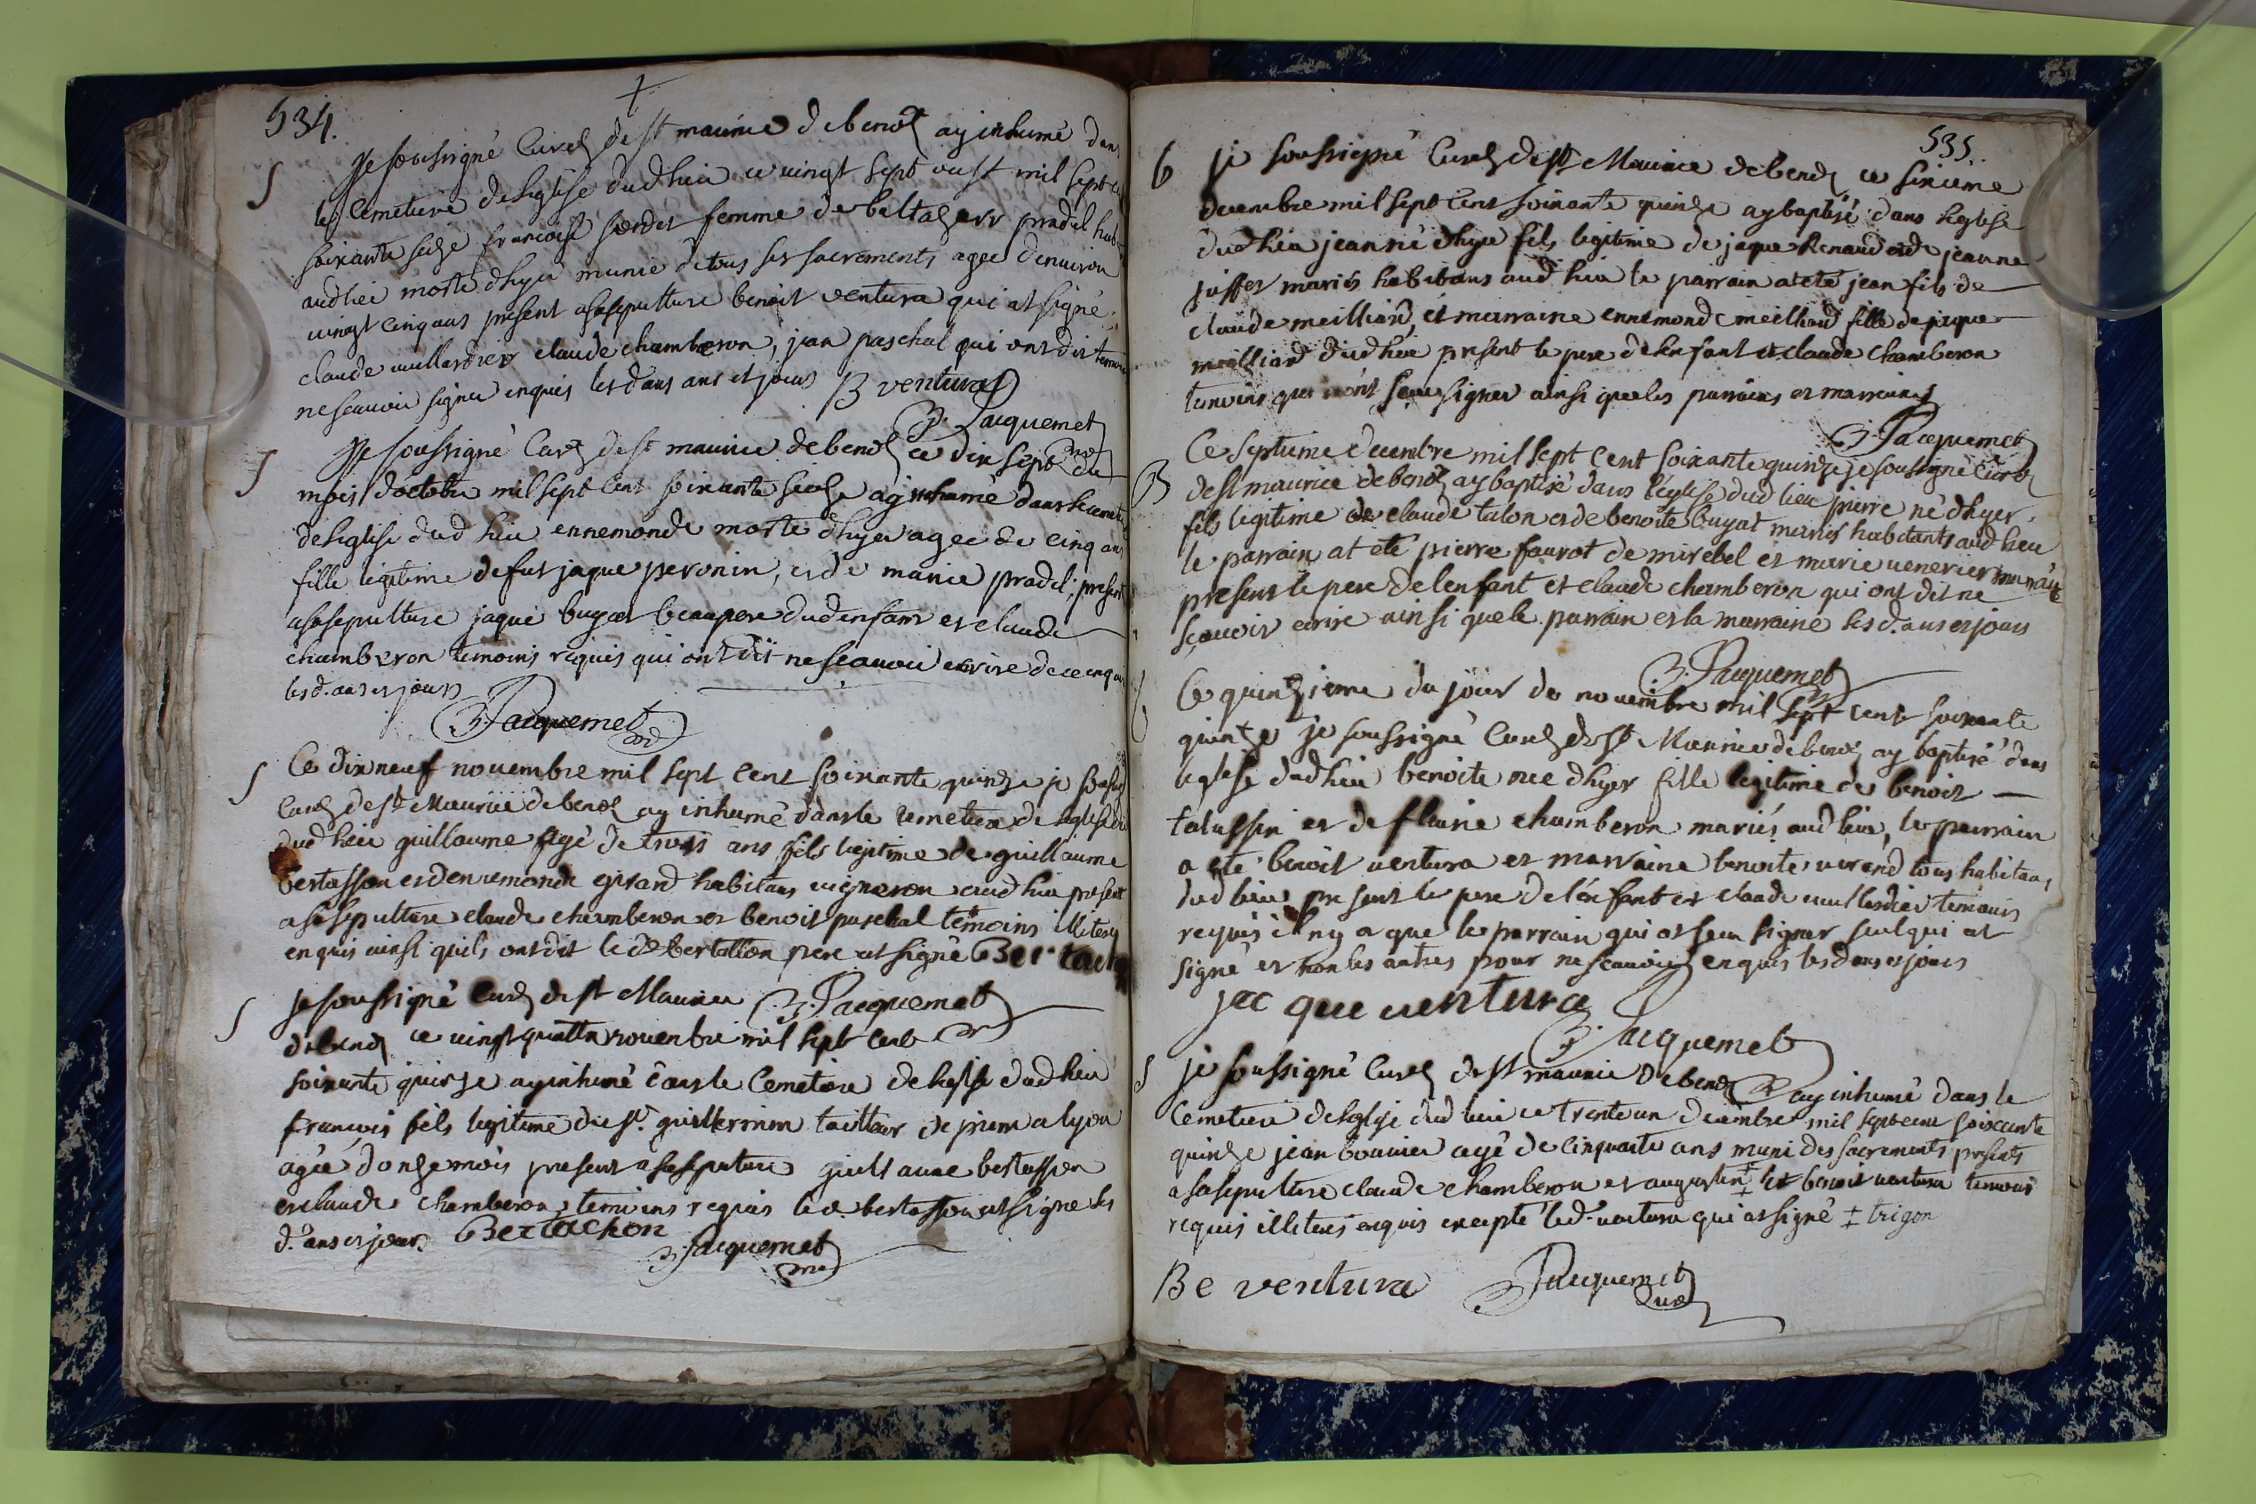 534.
S
Je soussigné Curé de st maurice de benot ay inhumé dans
le Cemetiere de leglise dud lieu ce vingt sept oust mil sept
soixante seize francoise sordet femme de baltazarr pradel
aud lieu morte dhyer munie de tous ses sacrements agee denviron
vingt cinq ans present asasepulture benoit ventura qui at signé
claude vullardier claude chamberon, jean paschal qui ont dit
ne scauoir signer enquis les d ans ans et jours B ventura
B. Jacquemet
S
Je soussigné Curé de st maurice de benot ce dix sept du
mois doctobre mil sept cent soixante seize ay inhumé dans le
de leglise dud lieu ennemonde morte dhyer agee de cinq ans
fille legitime de fut jaque peronin, et de marie pradel; present
asasepulture jaque buyat beaupere dud enfant et claude
chamberon temoins requis qui ont dit ne scauoir ecrire de ce enquis
les d. ans et jours
B. Jacquemet
S
Ce dix neuf nouembre mil sept cent soixante quinze je
Curé de st Maurice de benot ay inhumé dans le Cemetiere de leglise
dud lieu guillaume agé de trois ans fils legitime de guillaume
bertasson et dennemonde girard habitans vigneron aud lieu present
asasepulture claude chamberon et benoit paschal temoins illiteres
enquis ainsi quils ont dit le d bertasson pere at signé Bertacho
S
Je soussigné Curé de st Maurice B. Jacquemet
debenot ce vingt quatre nouembre mil sept cent
soixante quinze ay inhumé dans le Cemetiere de leglise dud lieu
francois fils legitime du sr. guillermin tailleur de pierre a lyon
agée donze mois present asasepulture guillaume bertasson
et claude chamberon temoins requis le d. bertasson at signé les
d. ans et jours Bertachon
B. Jacquemet
535.
b
je soussigné Curé de st Maurice debenot ce sixieme
decembre mil sept cent soixante quinze ay baptisé dans leglise
dud lieu jean né dhyer fils legitime de jaque Renaud et de jeanne
juffet mariés habitans aud lieu le parrain at eté jean fils de
claude meilliard, et marraine ennemonde meilliard fille de jaque
meilliard dud lieu present le pere de lenfant et claude chamberon
temoins qui n'ont sceu signer ainsi que les parrains et marraines
B. Jacquemet
B
Ce septieme decembre mil sept cent soixante quinze je soussigné Curé
de st maurice de benot ay baptisé dans l'eglise dud lieu pierre né dhyer
fils legitime de claude talon et de benoite buyat mariés habitants aud lieu
le parrain at eté pierre faurot de mirebel et marie venerier marraine
present le pere de lenfant et claude chamberon qui ont dit ne
scauoir ecrire ainsi que le parrain et la marraine les d. ans et jours
B. Jacquemet
Ce quinzieme du jour de nouembre mil sept cent soixante
quinze je soussigné Curé de st Maurice debenot ay baptisé dans
leglise dud lieu benoite née dhyer fille legitime de benoit
talussin et de flurie chamberon mariés aud lieu, le parrain
a eté benoit ventura et marraine benoite verend tous habitans
dud lieu present le pere de l'enfant et claude vullardier temoins
requis il ny a que le parrain qui at sceu signer seul qui at
signé et non les autres pour ne scauoir enquis les d ans et jours
jac que ventura
B. Jacquemet
S
je soussigné Curé de st maurice debenot ay inhumé dans le
Cemetiere de leglise dud lieu ce trente un decembre mil sept cent soixante
quinze jean bouuier agé de cinquante ans muni des sacrements presents
asasepulture claude chamberon et augustin ‡ et benoit ventura temoins
requis illiteres enquis excepté led. ventura qui at signé ‡ trigon
Be ventura
B. Jacquemet